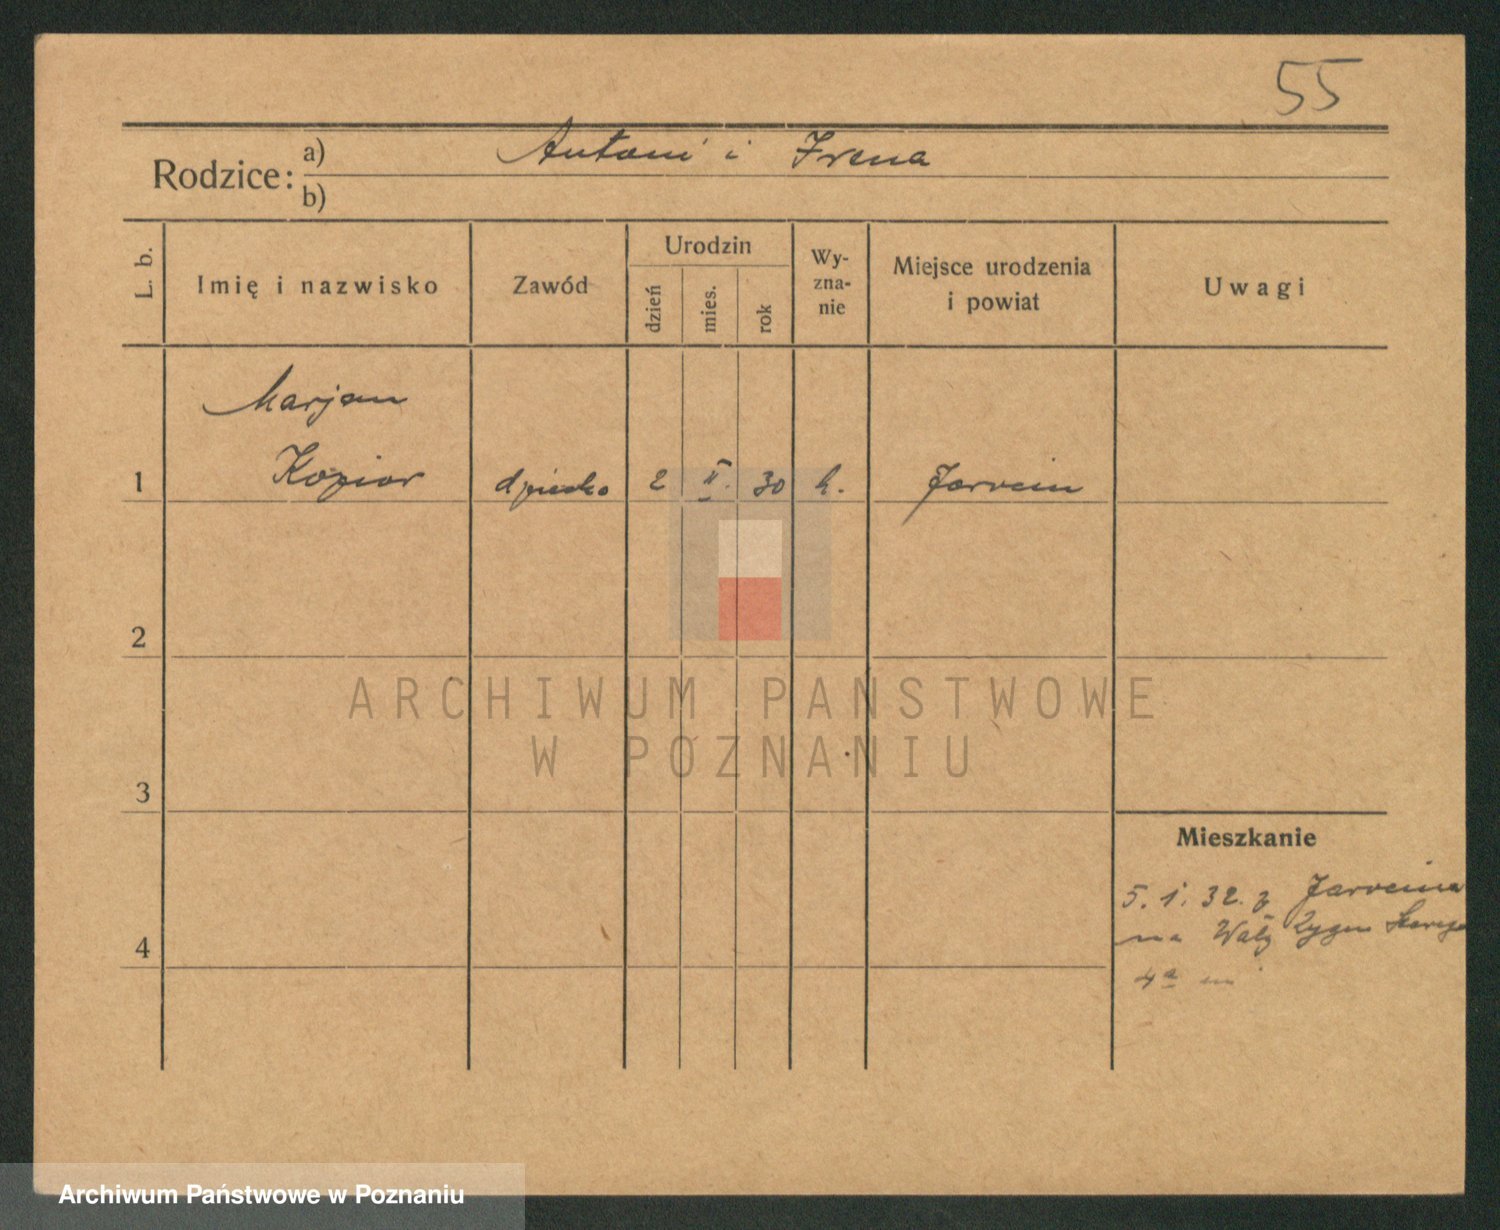 55
Rodzice: a) Antoni i Irena
b)
L. b. Imię i nazwisko Zawód Urodzin dzień mies. rok Wy-zna-nie Miejsce urodzenia i powiat Uwagi
Marjan
1 Kozior dziecko 2 II. 30 k. Jarocin
2
ARCHIWUM PAŃSTWOWE
W POZNANIU
3
Mieszkanie
5. 1. 32. z Jarocina
na Wały Zygm Starego
4
4a m
Archiwum Państwowe w Poznaniu